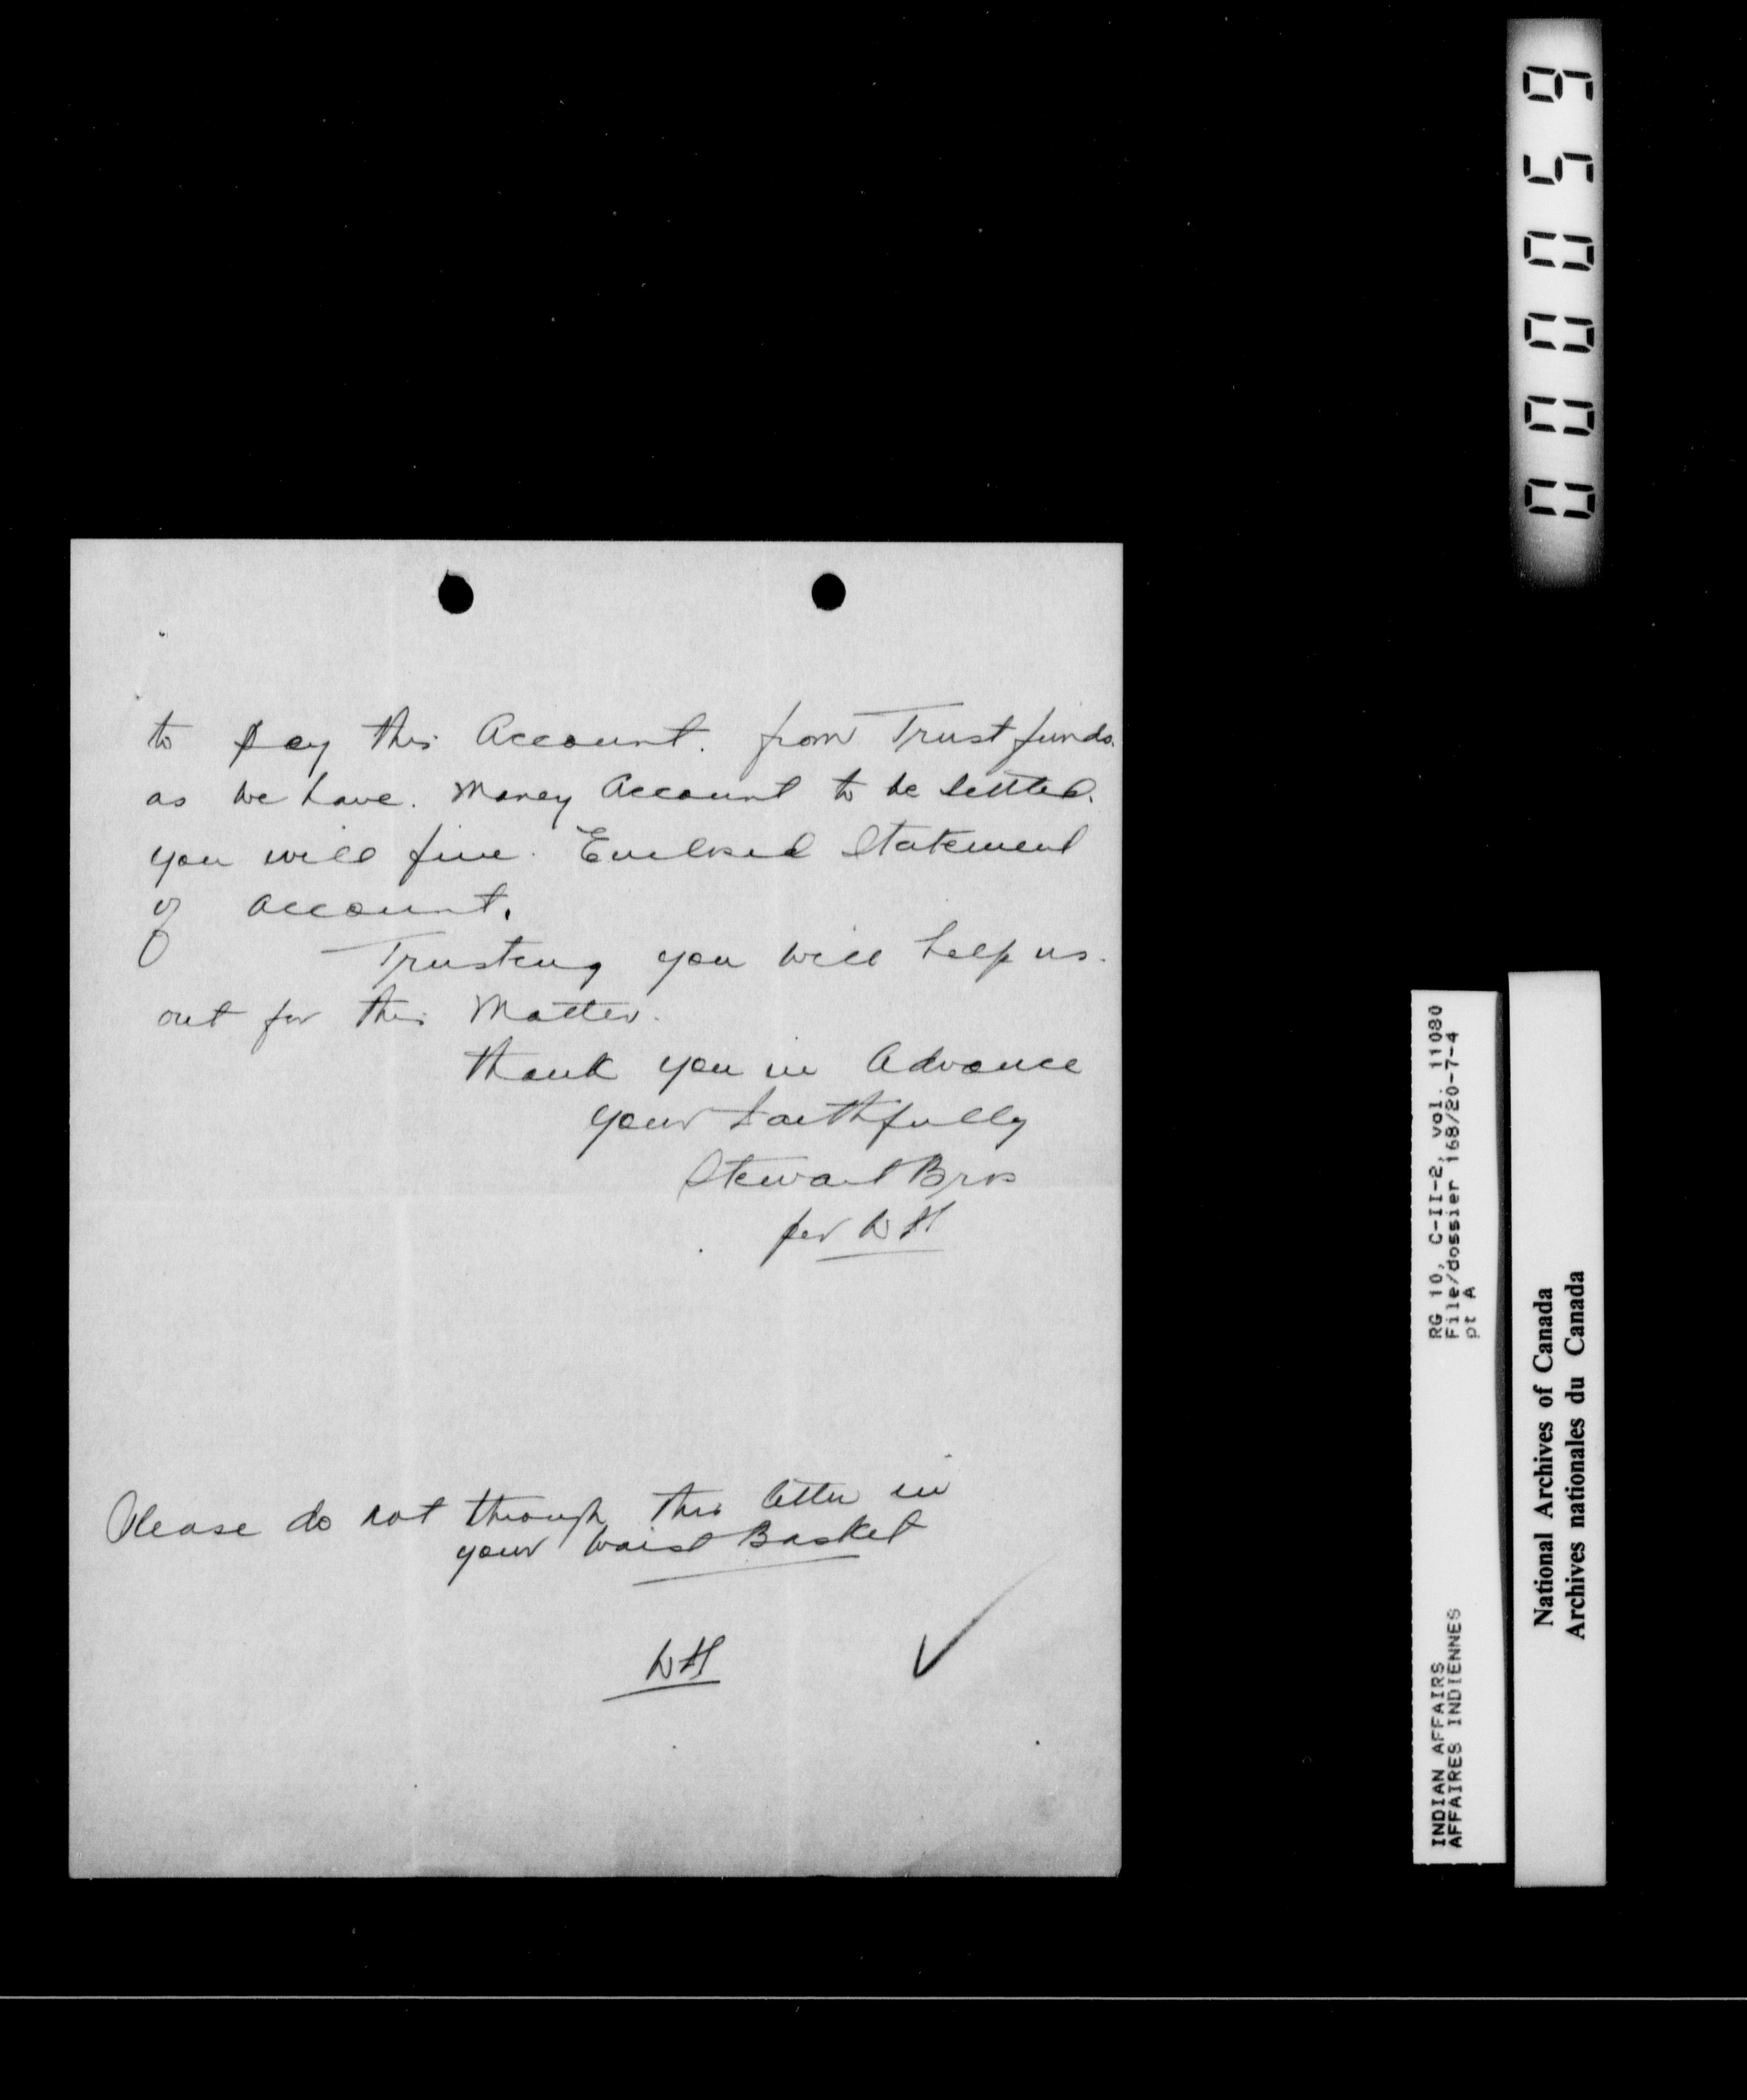 to pay this Account. from Trust funds.
as we have. Money Account to be settled.
you will fine. Enclosed Statement
of account.
Trusting you will help us.
out for this Matter.
thank you in Advance
your faithfully
Stewart Bros
per WH
Please do not through this letter in
your waist Basket
WH
000059
RG 10, C-II-2, vol. 11080
File/dossier 168/20-7-4
pt A
INDIAN AFFAIRS
AFFAIRES INDIENNES
National Archives of Canada
Archives nationales du Canada